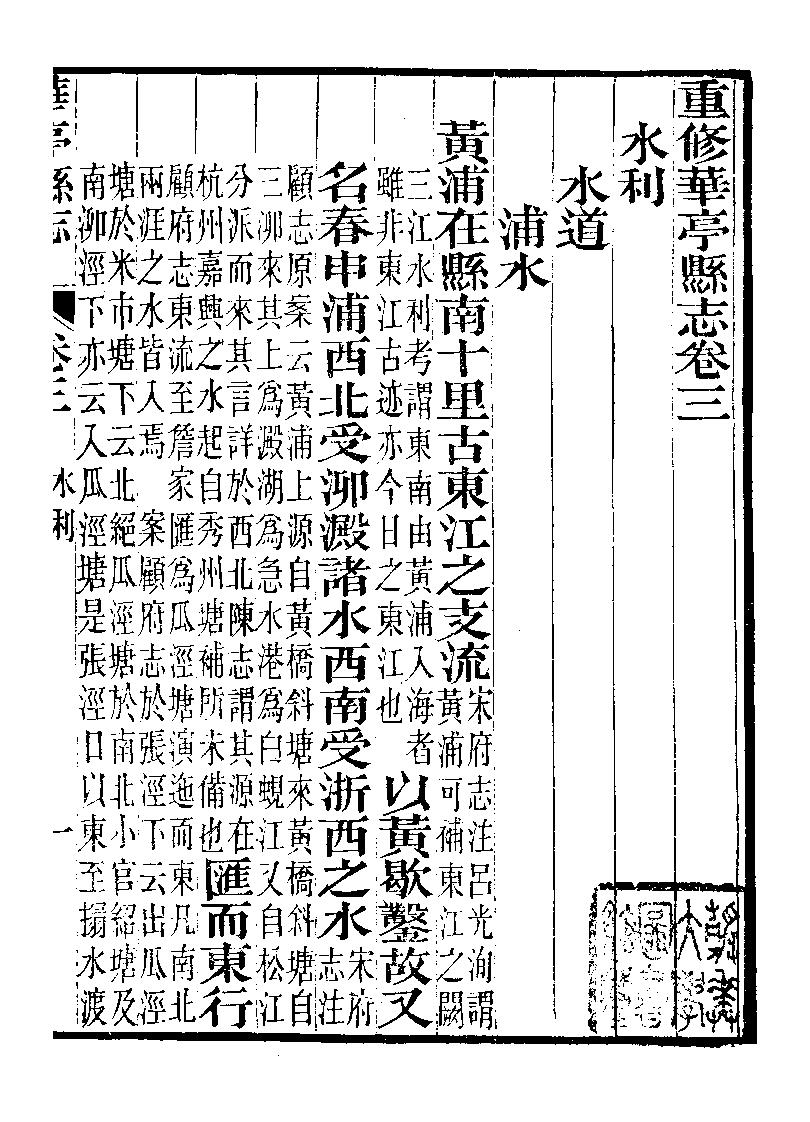 重修華亭縣志卷三
水利
水道
浦水
黃浦在縣南十里古東江之支流宋府志注呂光洵謂
黃浦可補東江之闕
三江水利考謂東南由黃浦入海者
雖非東江古迹亦今日之東江也
以黃歇鑿故又
名春申浦西北受泖澱諸水西南受浙西之水宋府
志注
顧志原案云黃浦上源自黃橋斜塘來黃橋斜塘自
三泖來其上爲澱湖爲急水港爲白蜆江又自松江
分派而來其言詳於西北陳志謂其源在
杭州嘉興之水起自秀州塘補所未備也
匯而東行
顧府志東流至詹家匯爲瓜涇塘演迤而東凡南北
兩涯之水皆入焉 案顧府志於張涇下云出瓜涇
塘於米市塘下云北絕瓜涇塘於南北小官紹塘及
南泖涇下亦云入瓜涇塘是張涇口以東至搨水渡
華亭縣志 卷三 水利 一